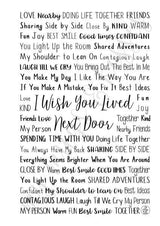 LOVE Nearby DOING LIFE TOGETHER FRIENDS
Sharing Side by Side Close By KIND WARM
Fun Joy BEST SMILE Good times CONFIDANT
You Light Up the Room Shared Adventures
My Shoulder to Lean On Contagious Laugh
LAUGH TILL WE CRY You Bring Out The Best In Me
You Make My Day I Like The Way You Are
If You Make A Mistake, You Fix It Best Ideas
Love
I Wish You Lived
Fun
KIND
Joy
Next Door
Friends Love
Together Kind
My Person
Nearby SMILE
Spending Time With You DOING LIFE TOGETHER
You Always Have My Back SHARING SIDE BY SIDE
Everything Seems Brighter When You Are Around
CLOSE BY Warm Best Smile GOOD TIMES Together
You Light Up the Room SHARED ADVENTURES
Confidant My Shoulder to Lean On Best Ideas
CONTAGIOUS LAUGH Laugh Till We Cry My Person
MY PERSON Warm FUN Best Smile TOGETHER